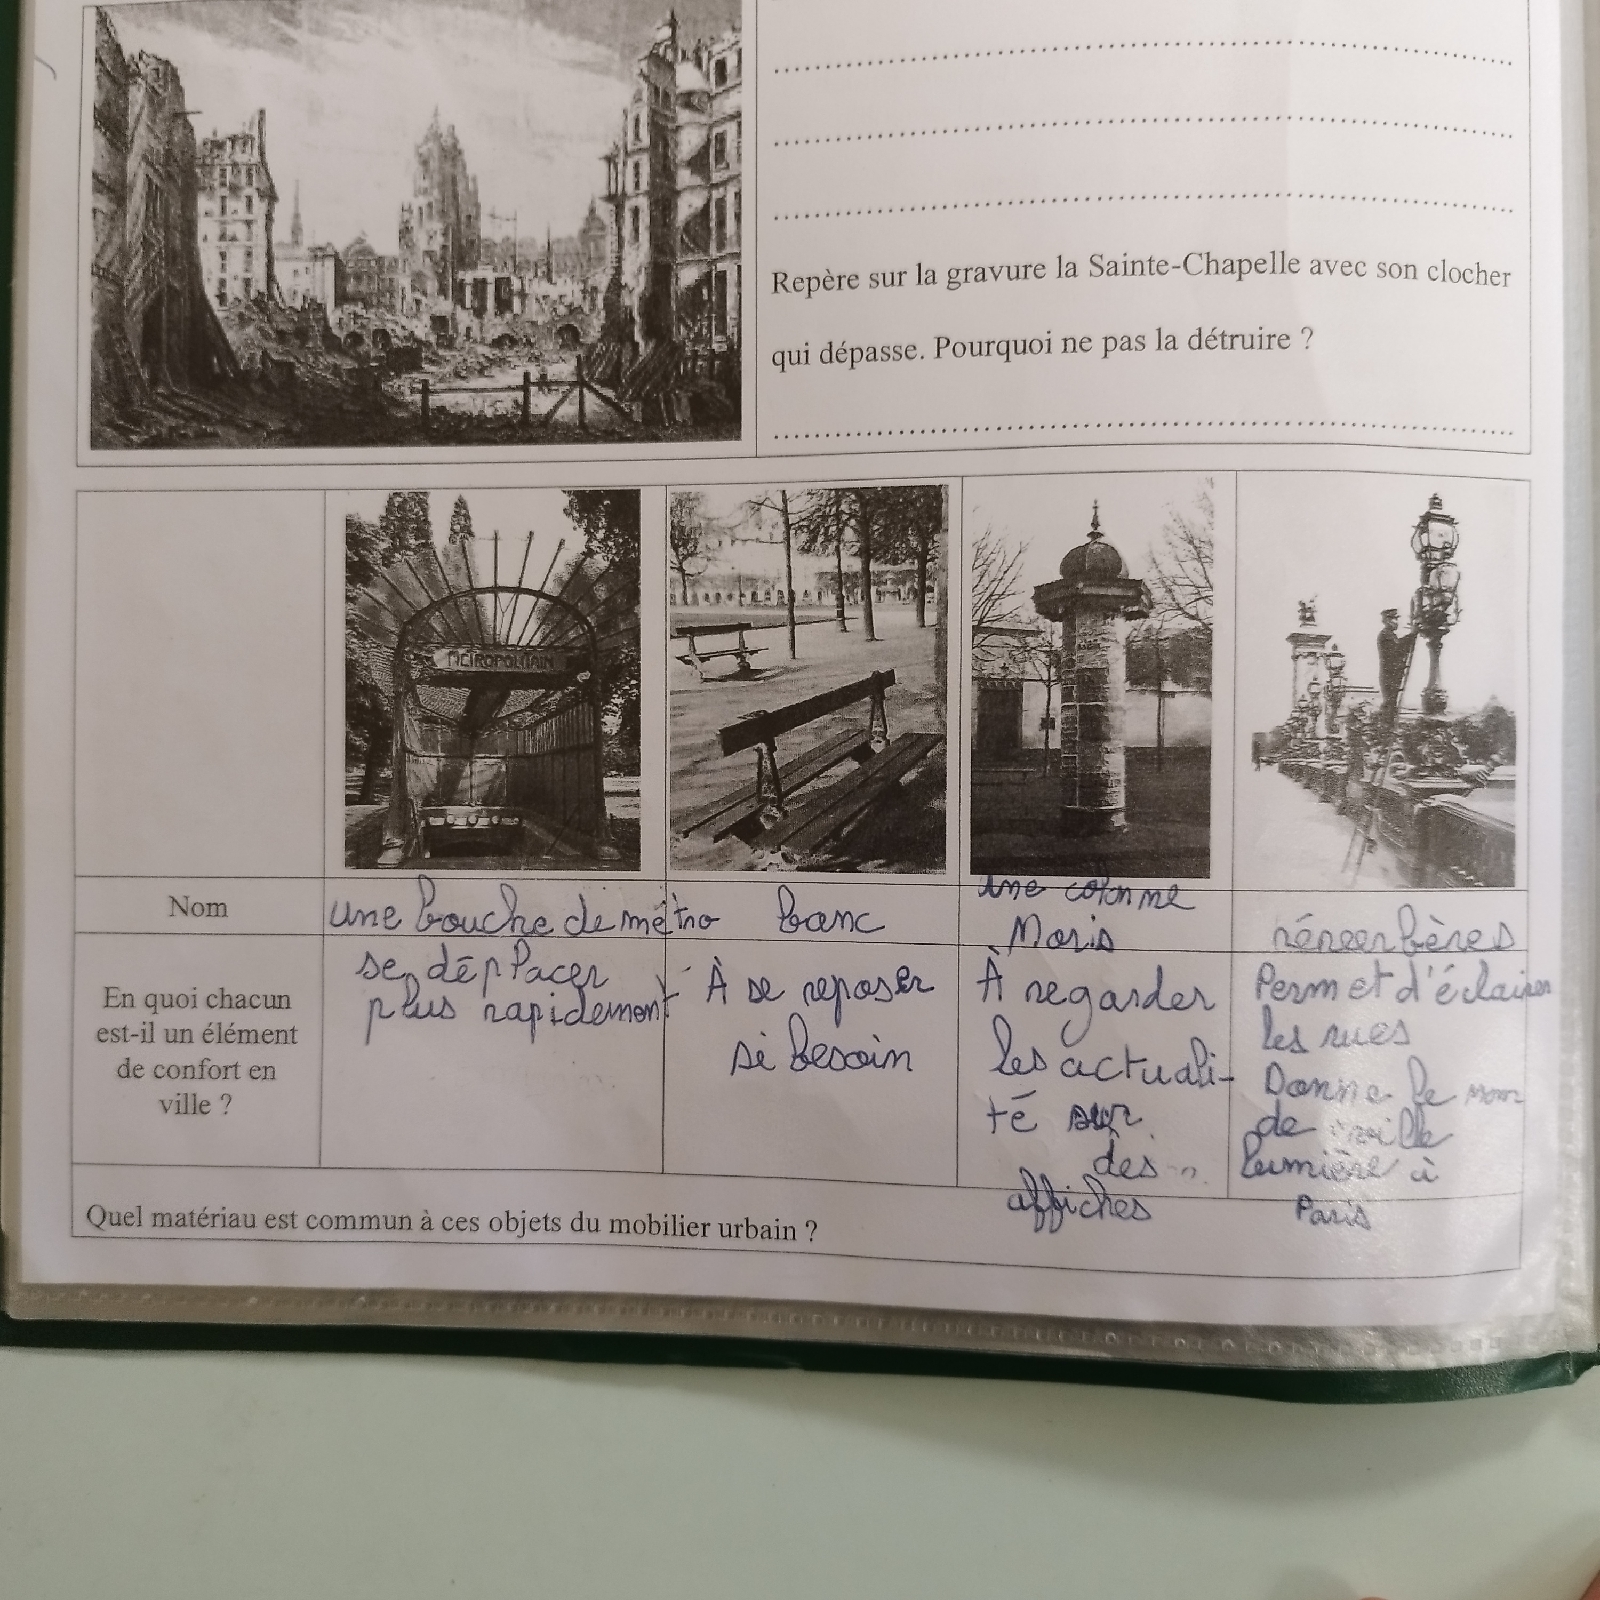 Repère sur la gravure la Sainte-Chapelle avec son clocher
qui dépasse. Pourquoi ne pas la détruire ?
METROPOLITAIN
Nom
une bouche de métro
banc
une colonne
Moris
réverbères
En quoi chacun
est-il un élément
de confort en
ville ?
se déplacer
plus rapidement
À se reposer
si besoin
À regarder
les actuali-
té sur
des
affiches
Permet d'éclairer
les rues
Donne le nom
de ville
lumière à
Paris
Quel matériau est commun à ces objets du mobilier urbain ?